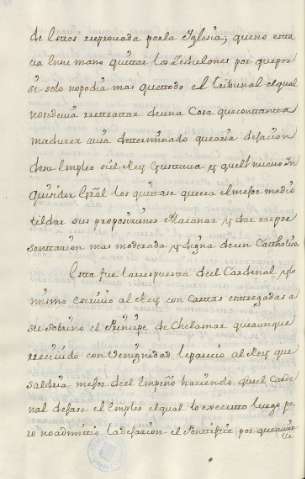 de letras reprovada por la Iglesia; que no esta
va en su mano quitar los Zedulones por que por
si solo no podia mas que todo el Tribunal el qual
no devia retratarse de una Cosa que con tanta
madurez avia determinado que aria dejacion
de su Empleo si el Rey gustava y que el nuevo In
quisidor Gral los quitase que era el mejor medio
tildar sus proposiciones Macanaz y dar su repre
sentacion mas moderada y digna de un Catholico
Esta fue la respuesta del Cardenal, y lo
mismo Escrivio al Rey con cartas entregadas a
su sobrino el Principe de Chelamar que aunque
recivido con Venignidad le parecio al Rey que
saldria mejor del Empeño haciendo que el Carde
nal dejase el Empleo el qual lo executo luego pe
ro no admitio la dejacion el Pontifice por que